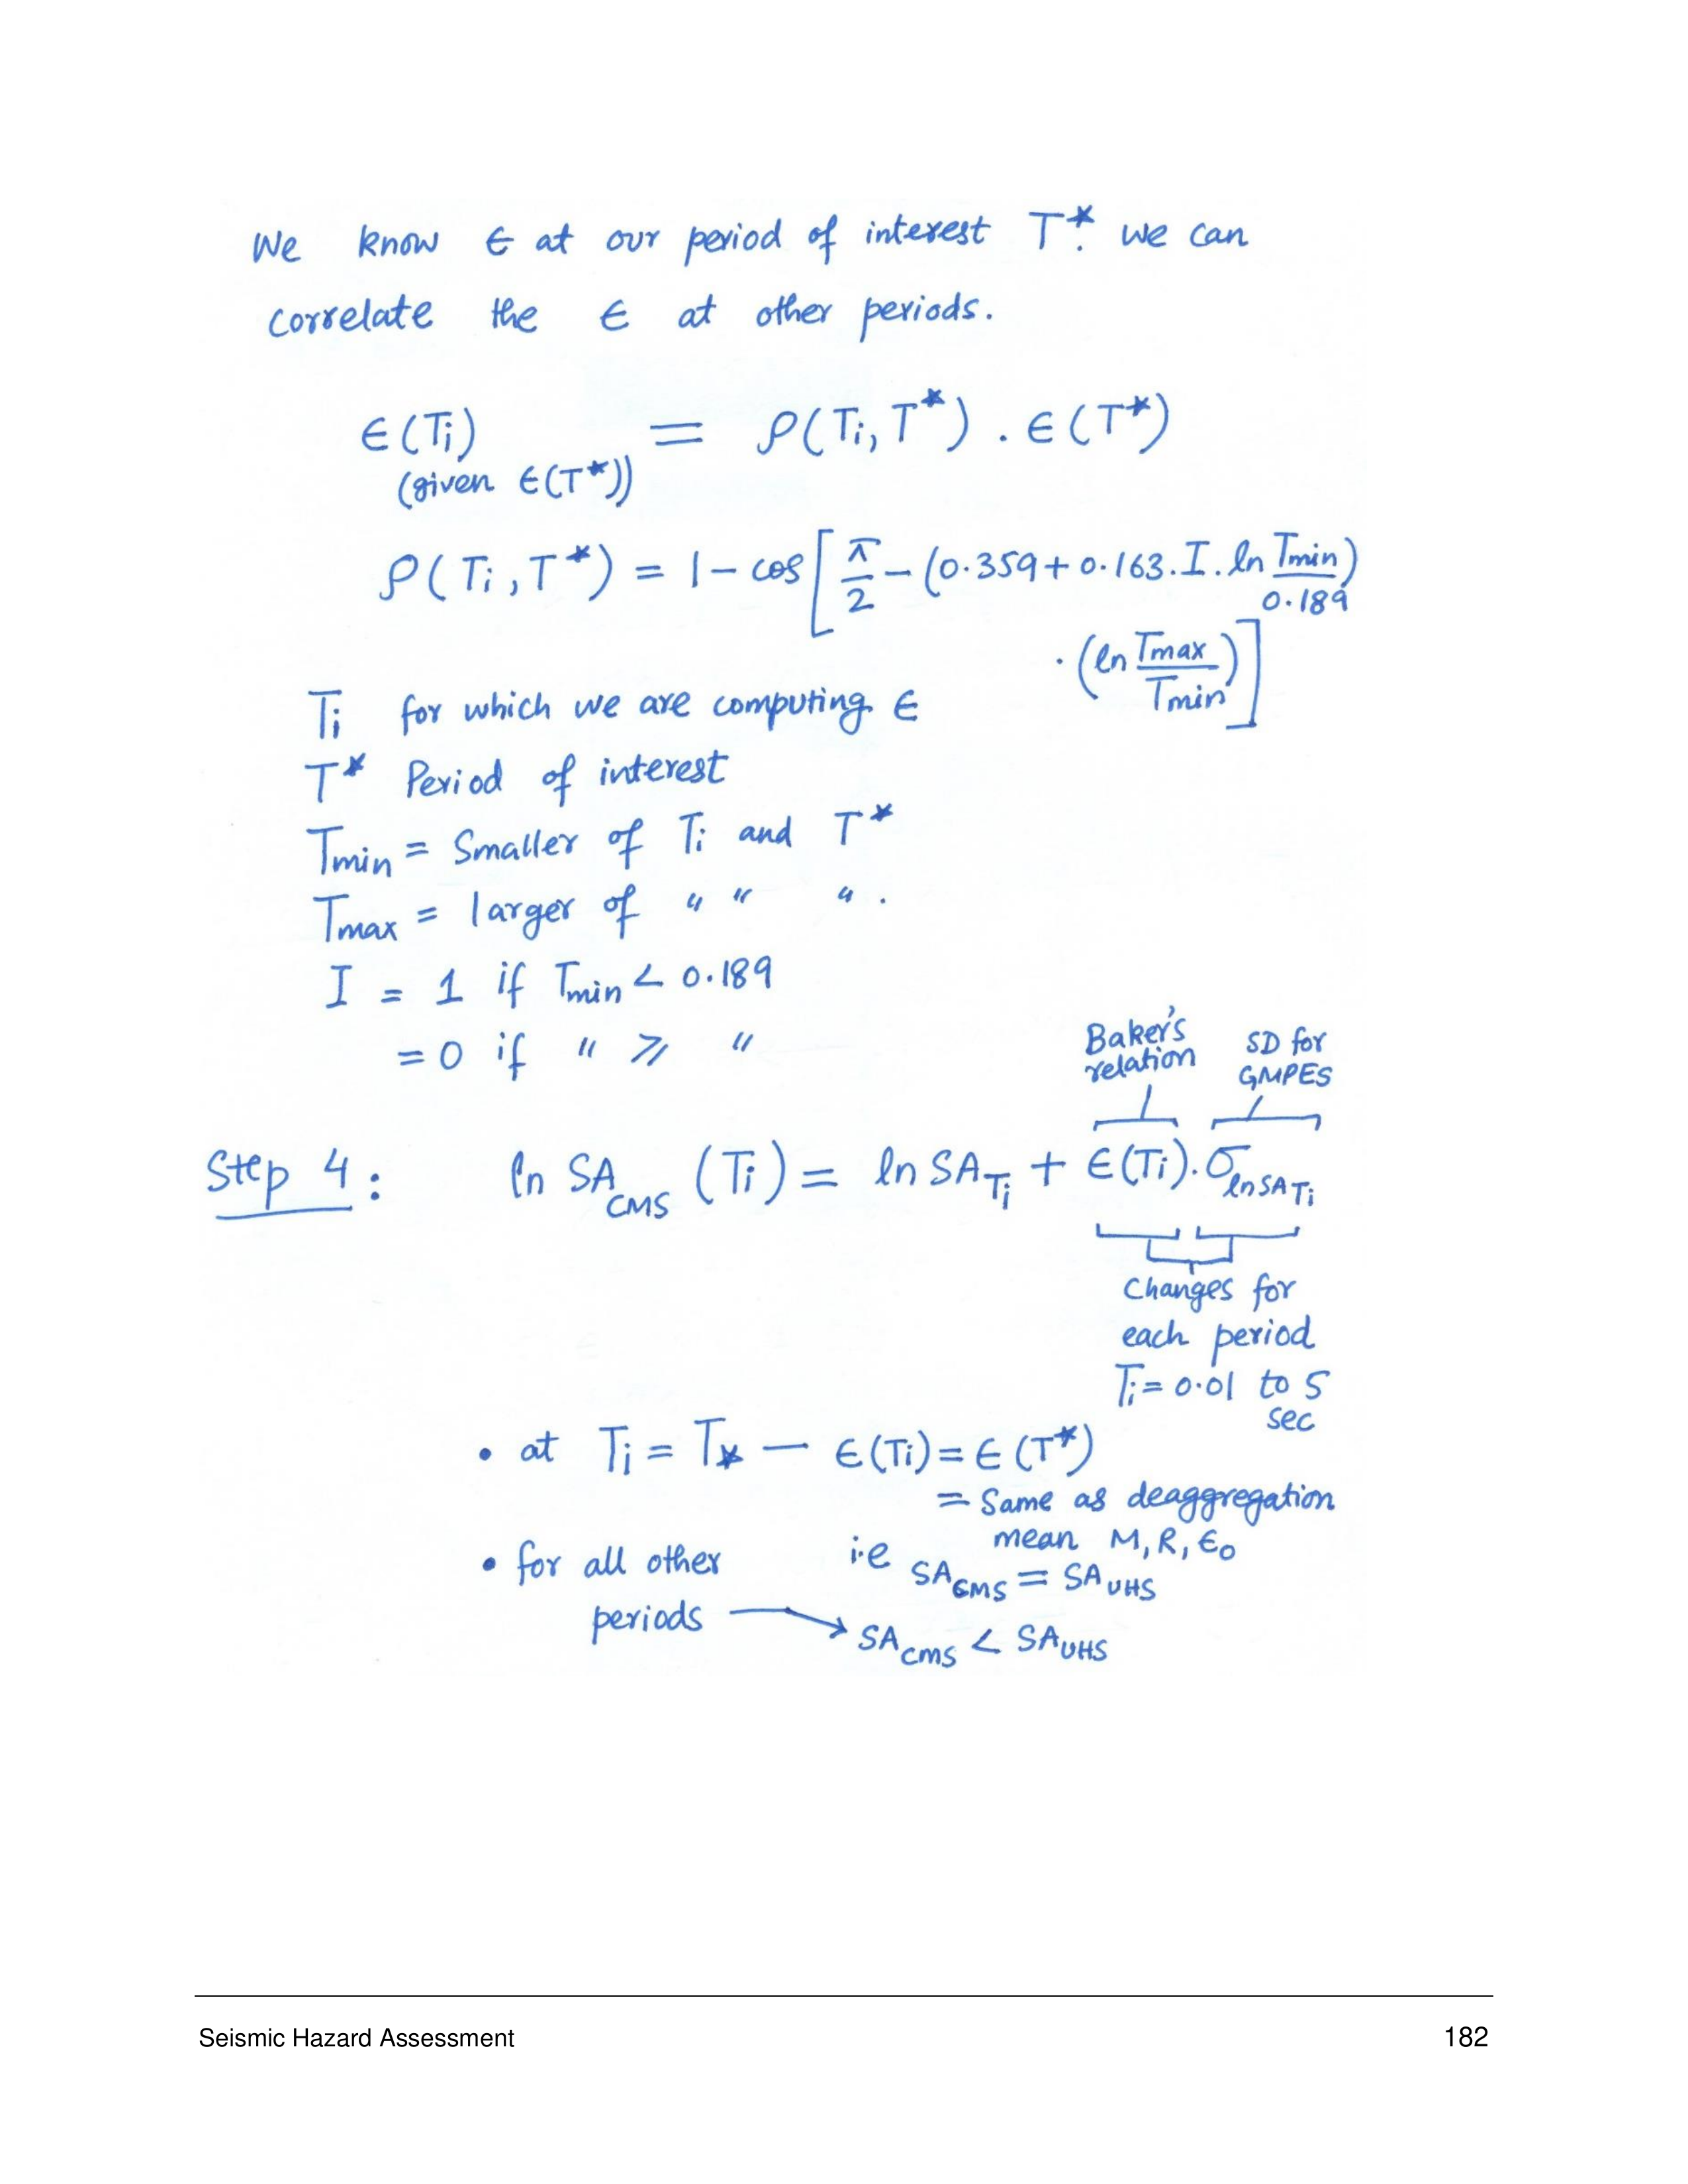 We know ∈ at our period of interest T*. we can
correlate the ∈ at other periods.
∈(Ti) = ρ(Ti, T*) . ∈(T*)
(given ∈(T*))
ρ(Ti, T*) = 1 - cos[π/2 - (0.359 + 0.163.I. ln Tmin/0.189)
. (ln Tmax/Tmin)]
Ti for which we are computing ∈
T* Period of interest
Tmin = Smaller of Ti and T*
Tmax = larger of " " ".
I = 1 if Tmin < 0.189
= 0 if " ⩾ "
Baker's relation
SD for GMPES
Step 4: ln SA CMS (Ti) = ln SA Ti + ∈(Ti). σ lnSA Ti
Changes for
each period
Ti = 0.01 to 5
sec
• at Ti = T* — ∈(Ti) = ∈(T*)
= Same as deaggregation
mean M, R, ∈0
i.e SA CMS = SA UHS
• for all other
periods → SA CMS < SA UHS
Seismic Hazard Assessment 182